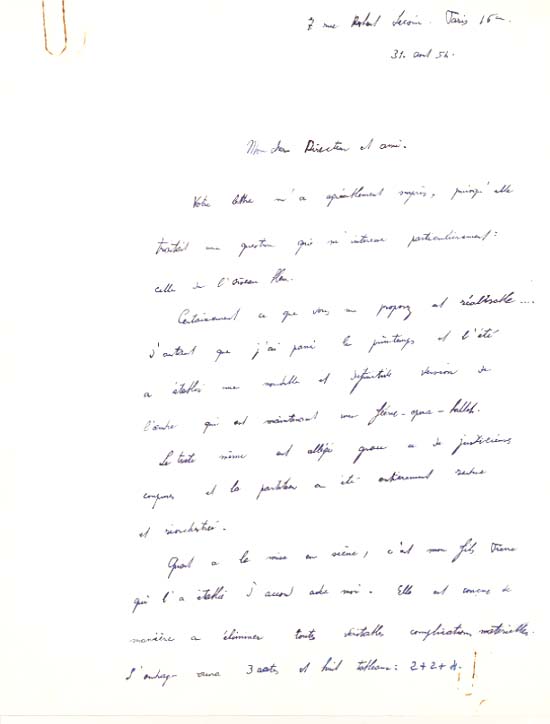 7 rue Paris 16e
31. août 54.
Mon cher Directeur et ami.
Votre lettre m'a agréablement surpris, puisqu'elle
traitait une question qui m'intéresse particulièrement:
celle de l'Oiseau bleu.
Certainement ce que vous me proposez est réalisable....
d'autant que j'ai passé le printemps et l'été
a établir une nouvelle et définitive version de
l'œuvre qui est maintenant une féerie-opéra-ballet.
Le texte même est allégé grace a de judicieuses
coupures et la partition a été entièrement revue
et réorchestrée.
Quant a la mise en scène, c'est mon fils
qui l'a établie d'accord avec moi. Elle est conçue de
manière a éliminer toutes véritables complications matérielles.
L'ouvrage aura 3 actes et huit tableaux: 2+2+